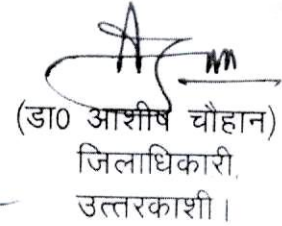 (डा0 आशीष चौहान)
जिलाधिकारी,
उत्तरकाशी।